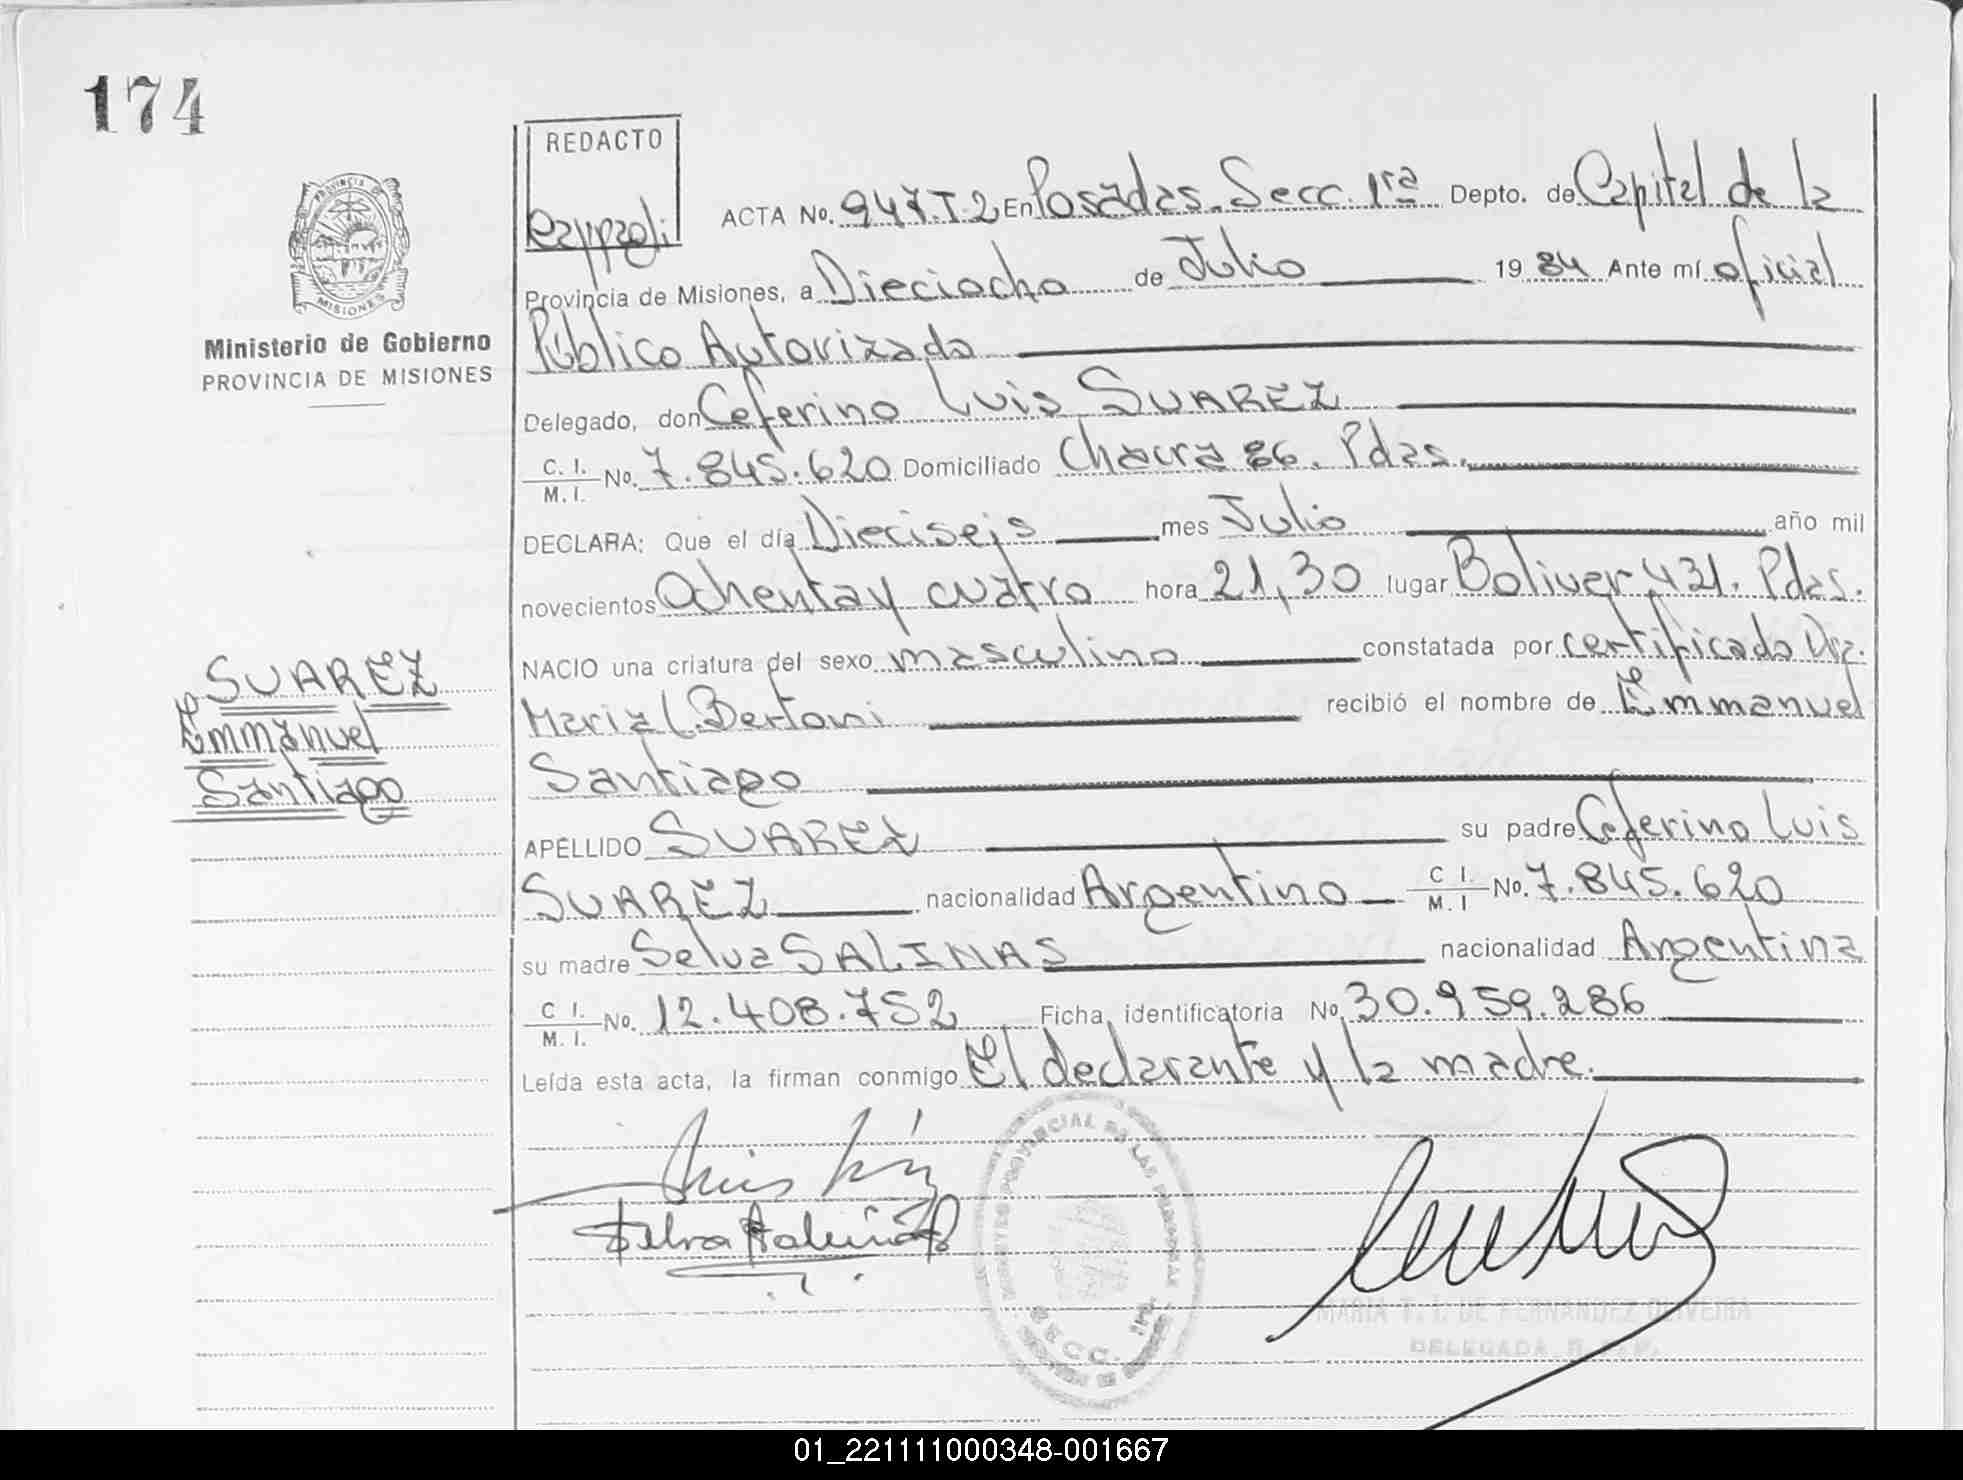 174
REDACTO
PROVINCIA DE
MISIONES
Ministerio de Gobierno
PROVINCIA DE MISIONES
ACTA No. 947.T.2 En Posadas. Secc. 1ra Depto. de Capital de la
Provincia de Misiones, a Dieciocho de Julio 19 84 Ante mí oficial
Público Autorizado
Delegado, don Ceferino Luis SUAREZ
C. I. / M. I. No. 7.845.620 Domiciliado Chacra 86. Pdas.
DECLARA: Que el día Dieciseis mes Julio año mil
novecientos Ochenta y cuatro hora 21,30 lugar Bolivar 431. Pdas.
NACIO una criatura del sexo masculino constatada por certificado Dra.
Maria L. Bertoni recibió el nombre de Emmanuel
Santiago
APELLIDO SUAREZ su padre Ceferino Luis
SUAREZ nacionalidad Argentino C I. / M. I No. 7.845.620
su madre Selva SALINAS nacionalidad Argentina
C I. / M. I. No. 12.408.752 Ficha identificatoria No 30.959.286
Leída esta acta, la firman conmigo El declarante y la madre.
SUAREZ
Emmanuel
Santiago
Selva Salinas
PROVINCIAL DE LAS PERSONAS
SECC. 1ra.
MARIA T. I. DE FERNANDEZ OLIVEIRA
DELEGADA R. P. P.
01_221111000348-001667